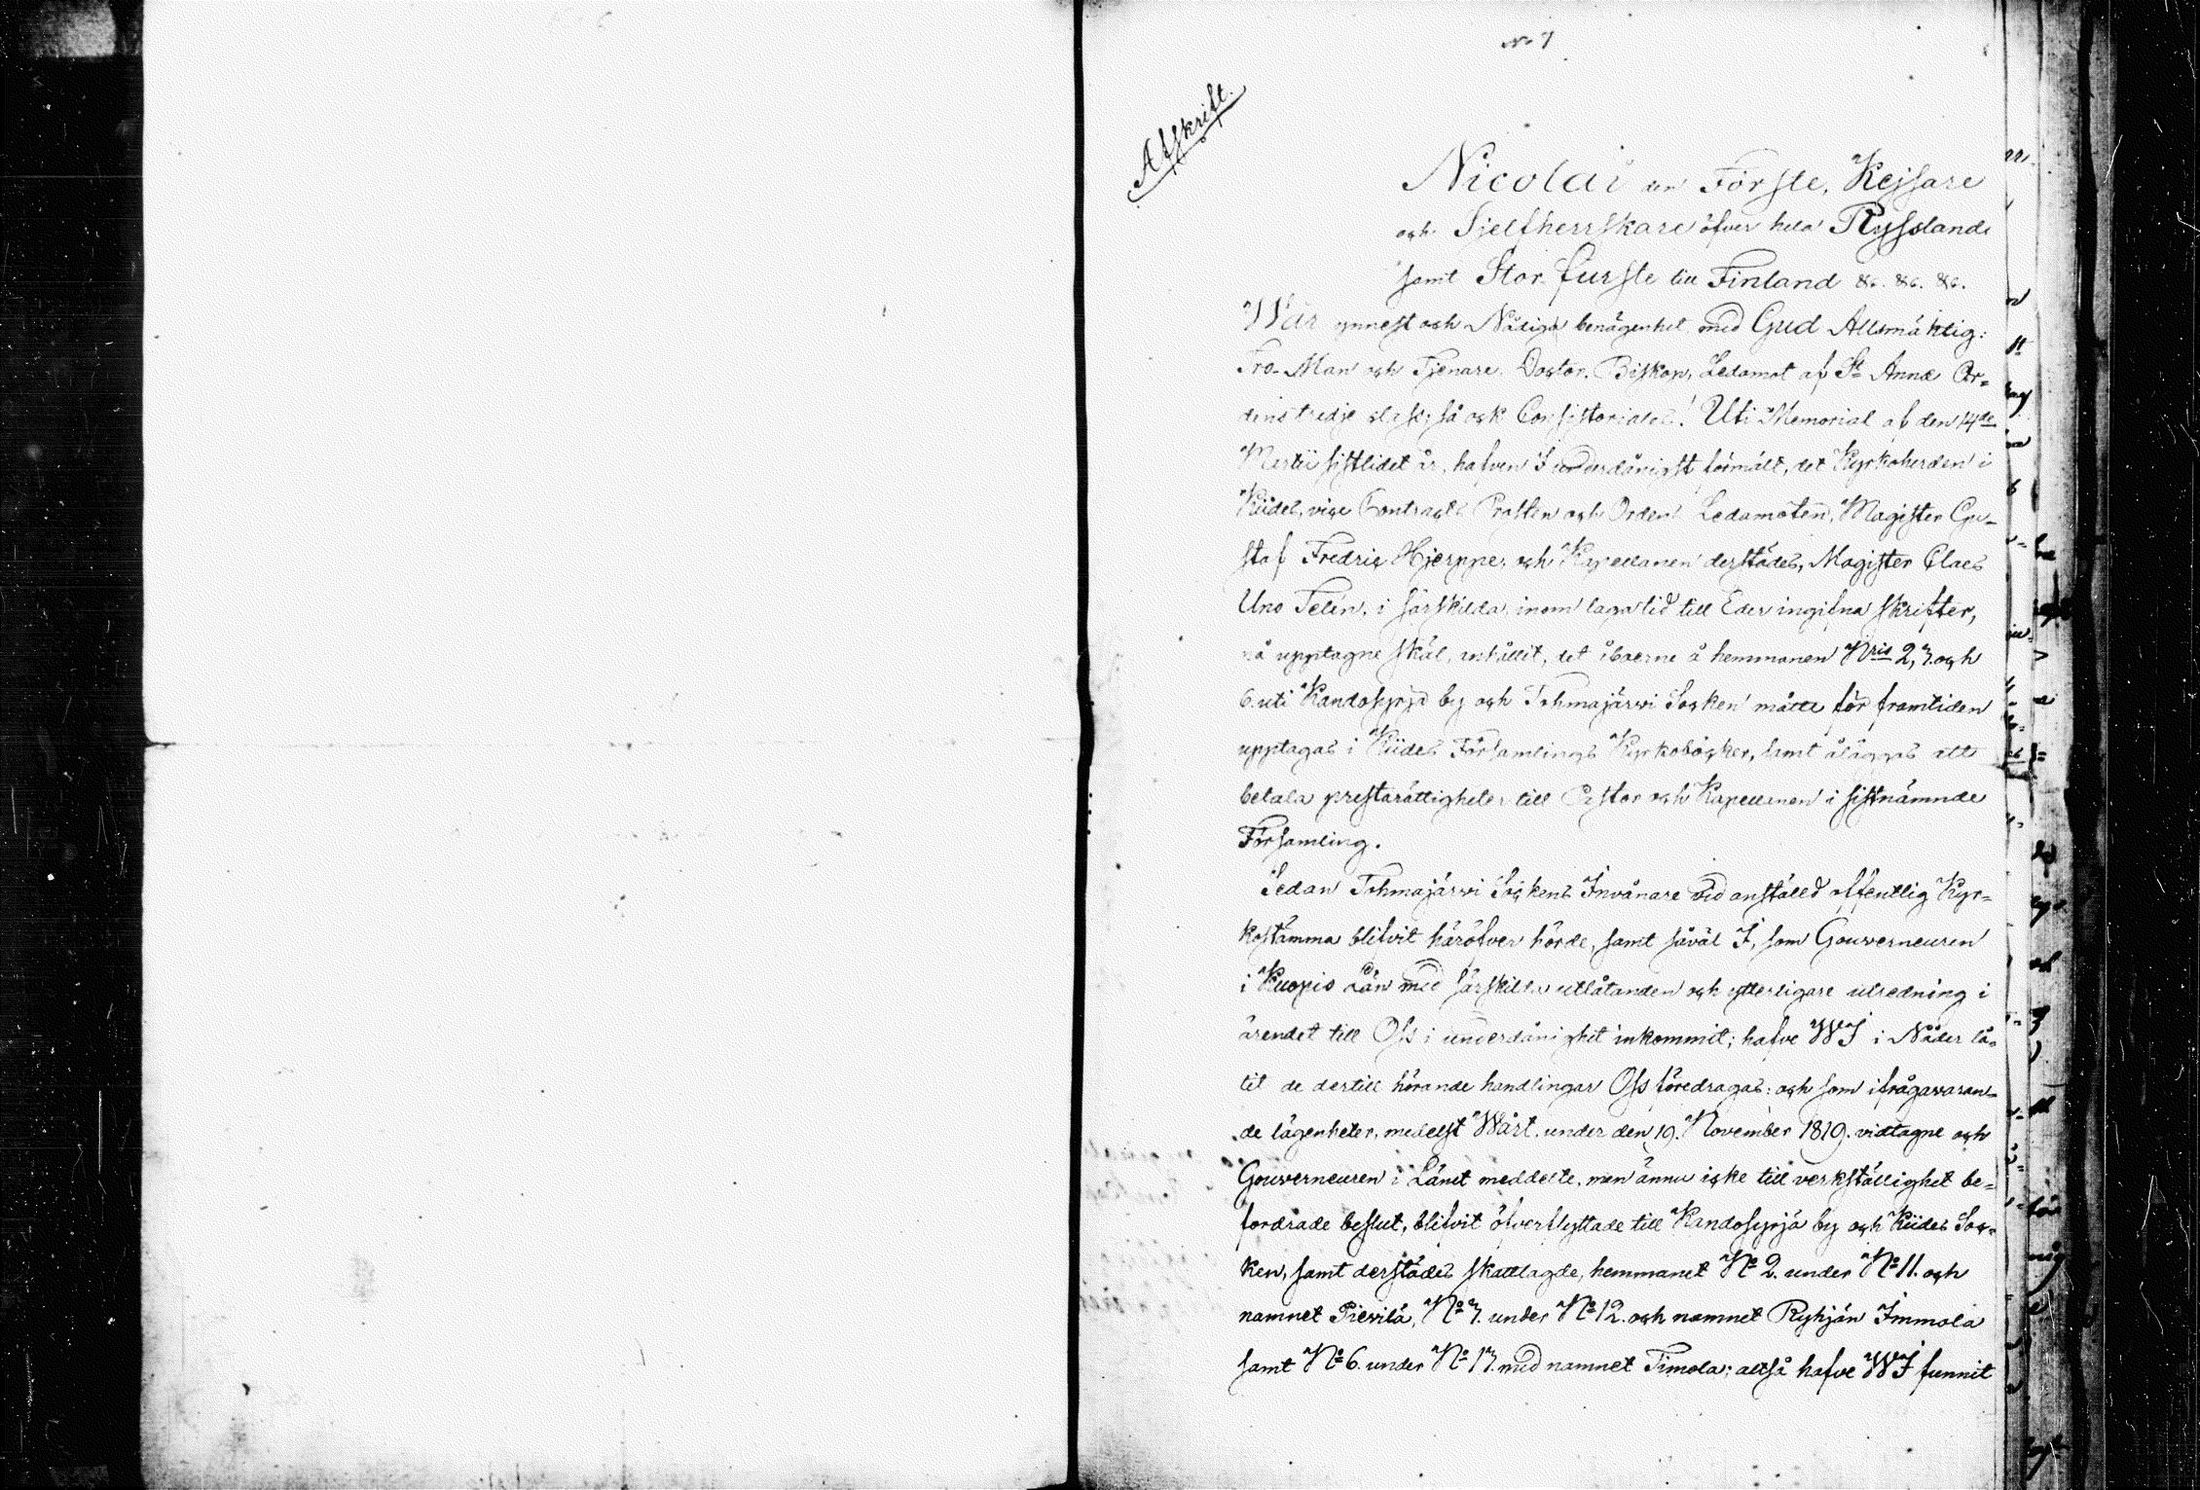 No 7
Afskrift.
Nicolai den Förste, Kejsare
och Sjelfherrskare öfver hela Ryssland
samt Stor-furste till Finland &c. &c. &c.
Wår ynnest och Nådiga benägenhet med Gud Allsmäktig:
Tro-Man och Tjenare, Doctor, Biskop, Ledamot af St Annæ Or-
dens tredje class, så ock Consistoriales! Uti Memorial af den 14de
Martii sistlidet år, hafven I underdånigst förmält, det Kyrkoherden i
Kides, vice Contracts Prosten och Ordens Ledamoten, Magister Gu-
staf Fredric Hjerppe, och Kapellanen derstädes, Magister Claes
Uno Telén, i särskilda, inom laga tid till Eder ingifna skrifter,
på upptagne skäl, anhållit, det åboerne å hemmanen Nris 2, 3. och
6. uti Kandosyrjä by och Tohmajärwi Socken måtte för framtiden
upptagas i Kides Församlings Kyrkoböcker, samt åläggas att
betala prestarättigheter till Pastor och Kapellanen i sistnämnde
Församling.
Sedan Tohmajärwi Sockens Invånare vid anställd offentlig Kyr-
kostämma blifvit häröfver hörde, samt såväl I, som Gouverneuren
i Kuopio Län med särskilda utlåtanden och ytterligare utredning i
ärendet till Oss i underdånighet inkommit; hafve WI i Nåder lå-
tit de dertill hörande handlingar Oss föredragas: och som ifrågavaran-
de lägenheter, medelst Wårt, under den 19. November 1819. vidtagne och
Gouverneuren i Länet meddelte, men ännu icke till verkställighet be-
fordrade beslut, blifvit öfverflyttade till Kandosyrjä by och Kides Soc-
ken, samt derstädes skattlagde, hemmanet No 2. under No 11. och
namnet Pievilä, No 3. under No 12. och namnet Ryhjän Immola
samt No 6. under No 13. med namnet Timola; altså hafve WI funnit